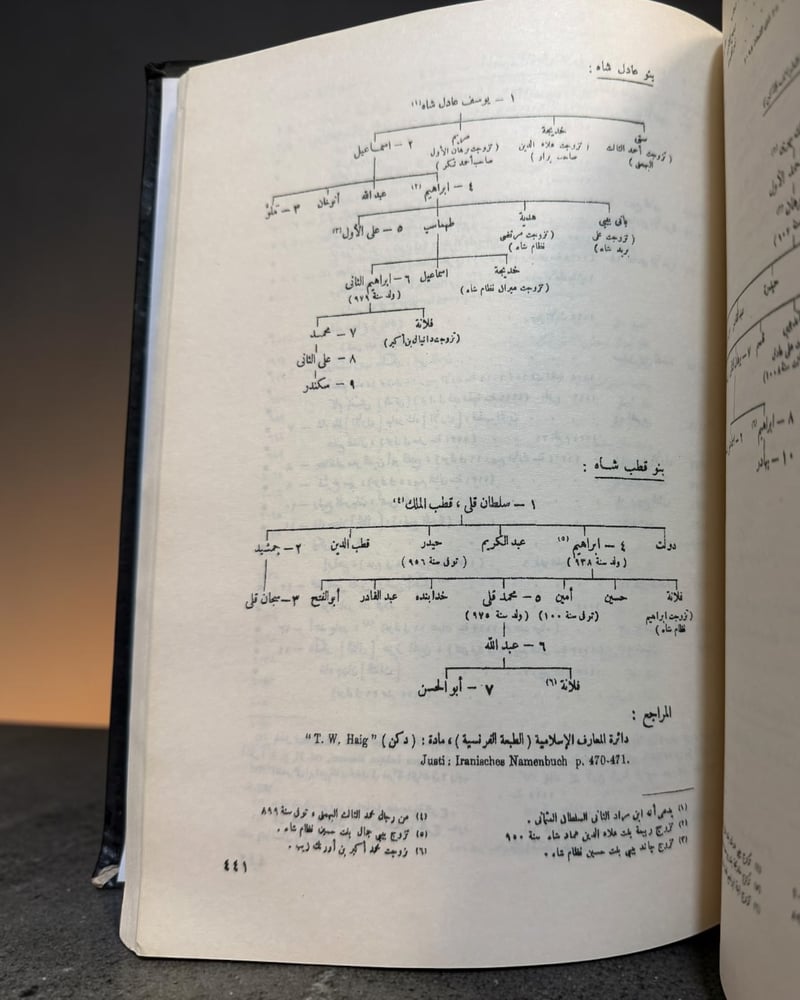 بنو عادل شاه :
١ — يوسف عادل شاه (١)
ستى خديجة مريم ٢ — اسماعيل
( تزوجت أحمد الثالث ( تزوجت علاء الدين ( تزوجت برهان الأول
البهمنى ) صاحب برار ) صاحب أحمد نكر )
٤ — ابراهيم (٢) عبد الله ٣ — ملو
بانى بيبى هدية طهماسب ٥ — على الأول (٣)
( تزوجت على ( تزوجت مرتضى
بريد شاه ) نظام شاه )
خديجة اسماعيل ٦ — ابراهيم الثانى
( تزوجت ميران نظام شاه ) ( ولد سنة ٩٧٩ )
فلانة ٧ — محمد
( تزوجت دانيال بن أكبر )
٨ — على الثانى
٩ — سكندر
بنو قطب شاه :
١ — سلطان قلى ، قطب الملك (٤)
دولت ٤ — ابراهيم (٥) عبد الكريم حيدر قطب الدين ٢ — جمشيد
( ولد سنة ٩٣٨ ) ( توفى سنة ٩٥٦ )
فلانة حسين أمين ٥ — محمد قلى خدابنده عبد القادر أبو الفتح ٣ — سبحان قلى
( تزوجت ابراهيم ( توفى سنة ١٠٠ ) ( ولد سنة ٩٧٥ )
نظام شاه )
٦ — عبد الله
فلانة (٦) ٧ — أبو الحسن
المراجع :
دائرة المعارف الإسلامية ( الطبعة الفرنسية ) ، مادة : ( دكن ) "T. W. Haig"
Justi : Iranisches Namenbuch p. 470-471.
(١) يدعى أنه ابن مراد الثانى السلطان العثمانى .
(٢) تزوج ربيبة بنت علاء الدين عماد شاه سنة ٩٥٠
(٣) تزوج چاند بيبى بنت حسين نظام شاه .
(٤) من رجال محمد الثالث البهمنى ، توفى سنة ٨٩٩
(٥) تزوج بيبى جمال بنت حسين نظام شاه .
(٦) زوجت محمد أكبر بن أورنك زيب .
٤٤١